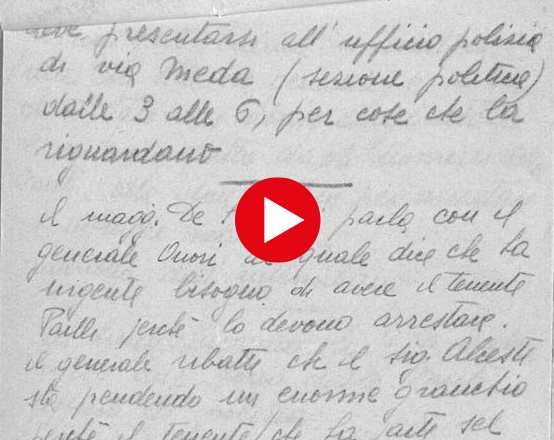 presentarsi all'ufficio polizia
di via Meda (sezione politica)
dalle 3 alle 6, per cose che la
riguardano
il magg. De parla con il
generale Onori al quale dice che ha
urgente bisogno di avere il tenente
perchè lo devono arrestare.
il generale ribatte che il sig. Alcesti
sta prendendo un enorme granchio
perchè il tenente che fa parte del